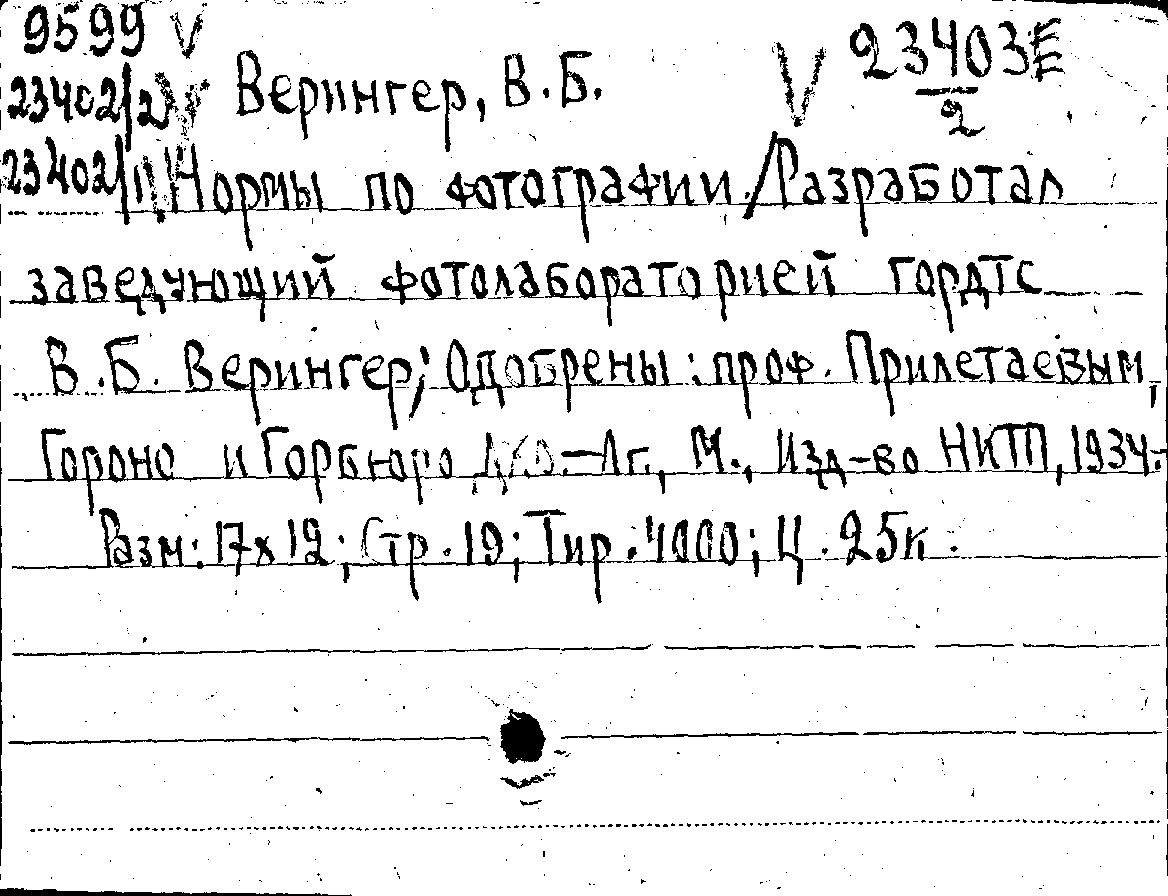 9599 V
23402/2 V Верингер, В.Б. V 23403
2
23402/1 Нормы по фотографии./Разработал
заведующий фотолабораторией гордтс
В.Б. Верингер; Одобрены: проф. Прилетаевым,
Гороно и Горбюро .-Лг., М., Изд-во НКТП, 1934.-
Разм: 17х12; Стр. 19; Тир. 4000; Ц. 25к.